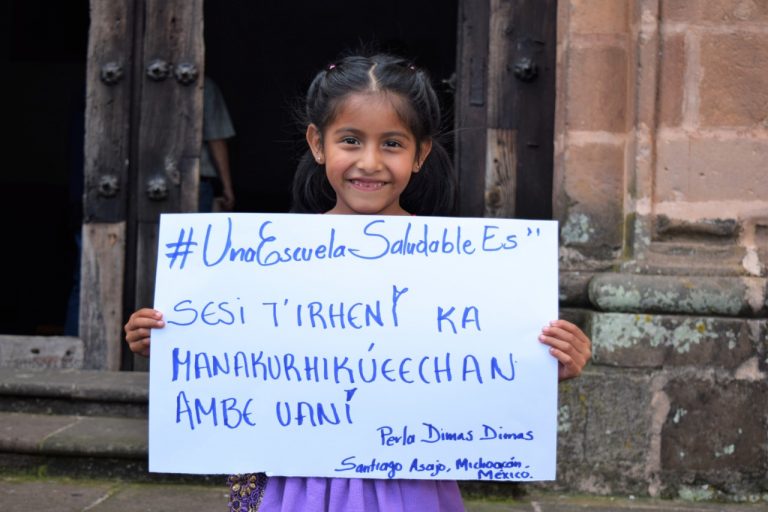 #UnaEscuelaSaludableEs"
SESI T'IRHENI KA
MANAKURHIKÚEECHAN
AMBE UANI
Perla Dimas Dimas
Santiago Asajo, Michoacán.
México.